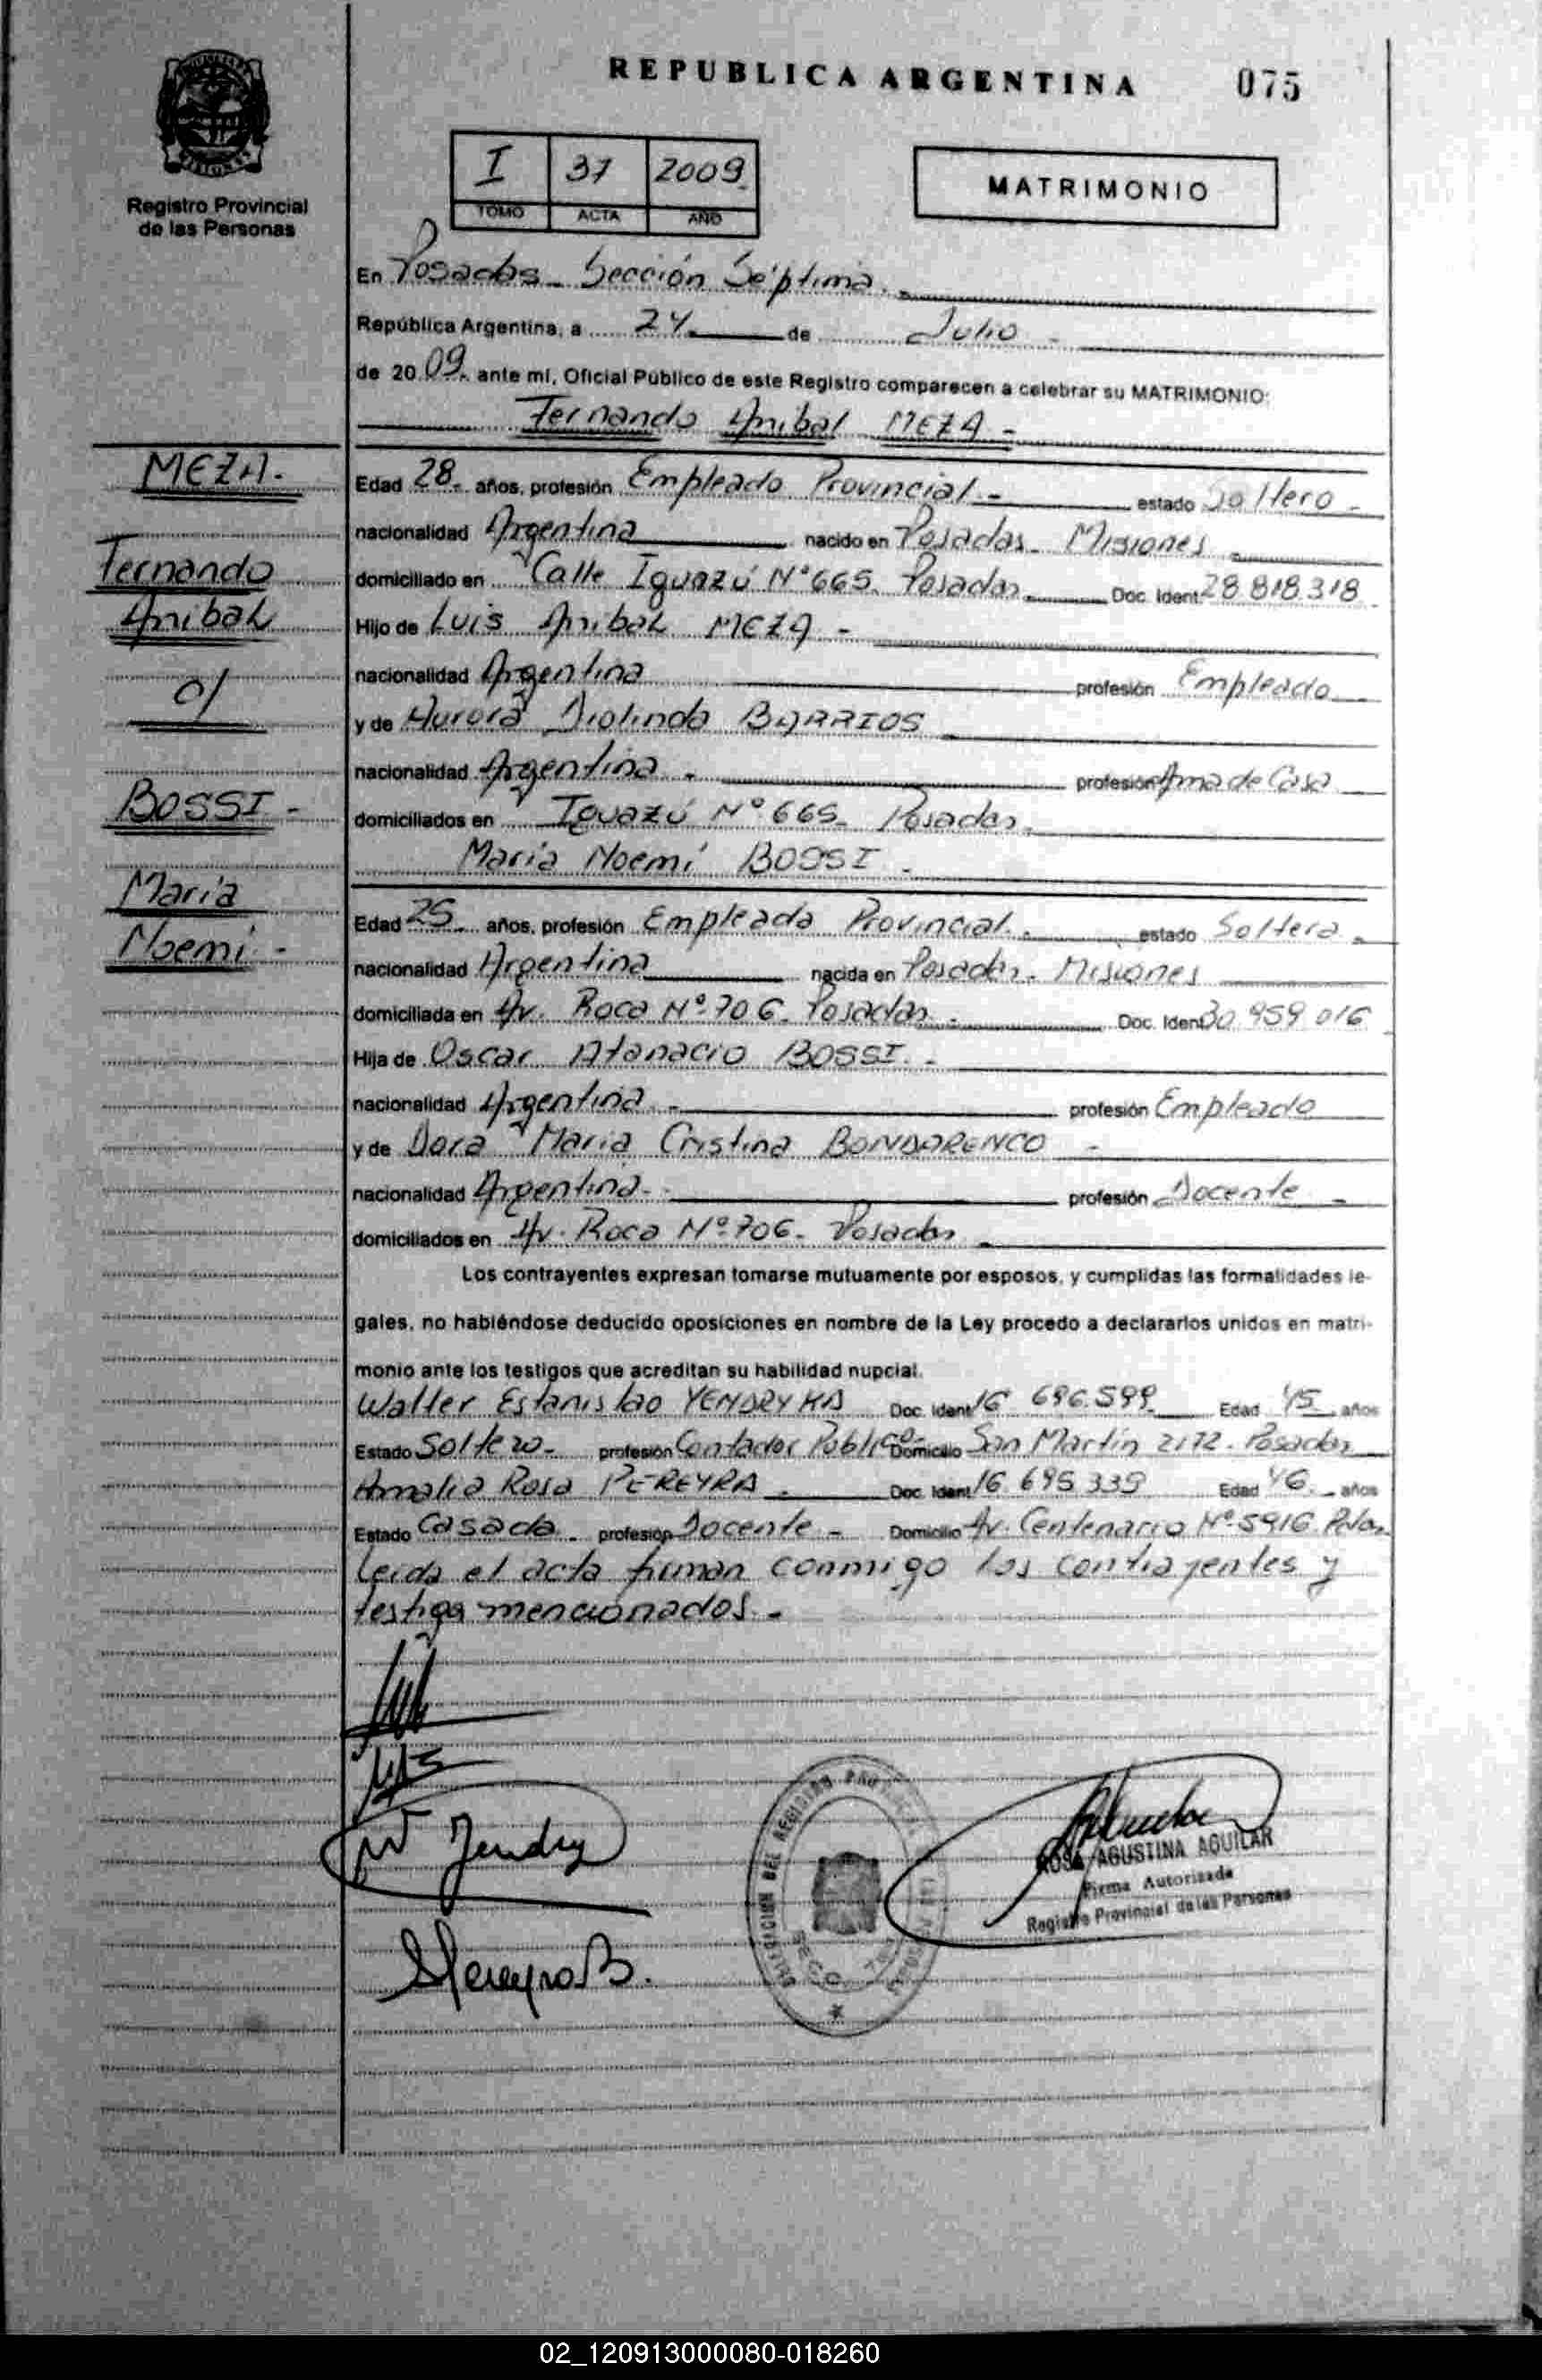 REPUBLICA ARGENTINA 075
Registro Provincial
de las Personas
I 37 2009
TOMO ACTA AÑO
MATRIMONIO
En Posadas - Sección Séptima.-
República Argentina, a 24 de Julio -
de 20 09. ante mí, Oficial Público de este Registro comparecen a celebrar su MATRIMONIO:
Fernando Anibal MEZA -
MEZA.-
Fernando
Anibal
c/
BOSSI -
María
Noemí -
Edad 28.- años, profesión Empleado Provincial.- estado Soltero -
nacionalidad Argentina nacido en Posadas - Misiones -
domiciliado en Calle Iguazú Nº 665. Posadas. Doc. Ident. 28.818.318
Hijo de Luis Anibal MEZA -
nacionalidad Argentina profesión Empleado
y de Aurora Diolinda BARRIOS
nacionalidad Argentina - profesión Ama de Casa
domiciliados en Iguazú Nº 665 - Posadas.
María Noemí BOSSI -
Edad 25 años, profesión Empleada Provincial. estado Soltera -
nacionalidad Argentina nacida en Posadas - Misiones
domiciliada en Av. Roca Nº 706 - Posadas - Doc. Ident. 30.959.016
Hija de Oscar Atanacio BOSSI. -
nacionalidad Argentina - profesión Empleado
y de Dora María Cristina BONDARENCO -
nacionalidad Argentina - profesión Docente -
domiciliados en Av. Roca Nº 706 - Posadas -
Los contrayentes expresan tomarse mutuamente por esposos, y cumplidas las formalidades le-
gales, no habiéndose deducido oposiciones en nombre de la Ley procedo a declararlos unidos en matri-
monio ante los testigos que acreditan su habilidad nupcial.
Walter Estanislao YENDRYKA Doc. Ident. 16.696.599 Edad 45 años
Estado Soltero - profesión Contador Público Domicilio San Martín 2172 - Posadas
Amalia Rosa PEREYRA - Doc. Ident. 16.695.339 Edad 46 años
Estado Casada - profesión Docente - Domicilio Av. Centenario Nº 5916
Leída el acta firman conmigo los contrayentes y
testigos mencionados.-
ROSA AGUSTINA AGUILAR
Firma Autorizada
Registro Provincial de las Personas
02_120913000080-018260